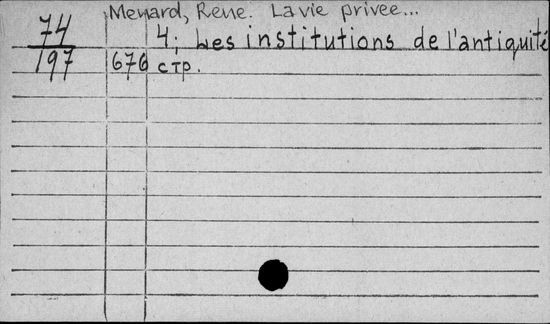 Menard, Rene. La vie privee...
74 4; Les institutions de l'antiquité
197 676 стр.